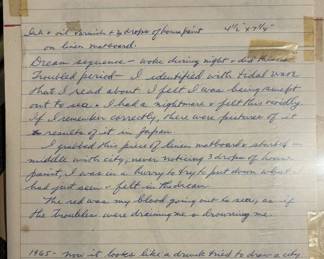 Ink + oil varnish + 3 drops of house paint 4½" x 7¼"
on linen matboard.
Dream sequence - woke during night + did this in
Troubled period - I identified with tidal wave
that I read about. I felt I was being swept
out to sea + I had a nightmare + felt this vividly.
If I remember correctly, there were pictures of it
+ results of it in Japan.
I grabbed this piece of linen matboard + started in
middle with city, never noticing 3 drops of house
paint, I was in a hurry to try to put down what I
had just seen + felt in the dream.
The red was my blood going out to sea, as if
the Troubles were draining me + drowning me.
1965 - now it looks like a drunk tried to draw a city